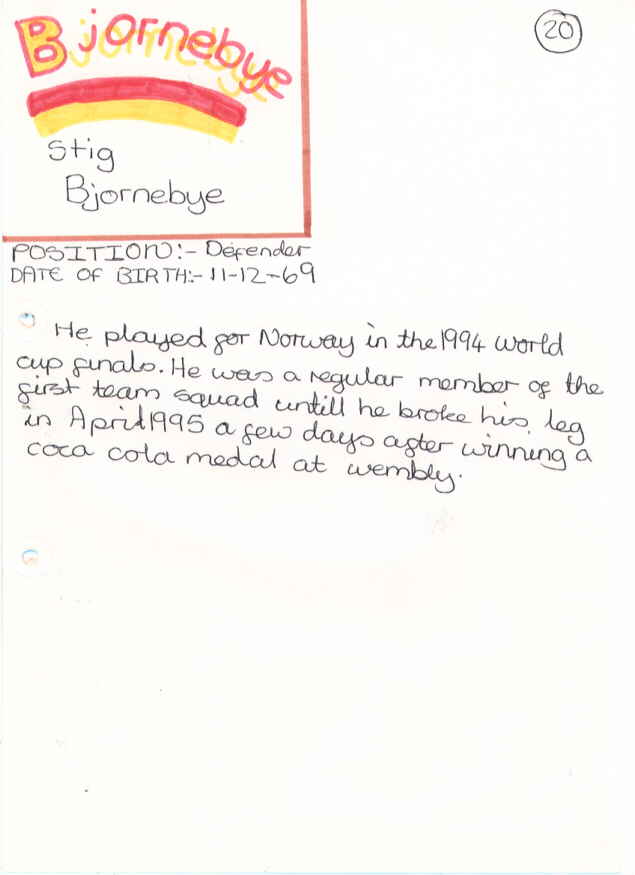 Bjornebye
20
Stig
Bjornebye
POSITION:- Defender
DATE OF BIRTH:- 11-12-69
He played for Norway in the 1994 world
cup finals. He was a regular member of the
first team squad untill he broke his leg
in April 1995 a few days after winning a
coca cola medal at wembly.